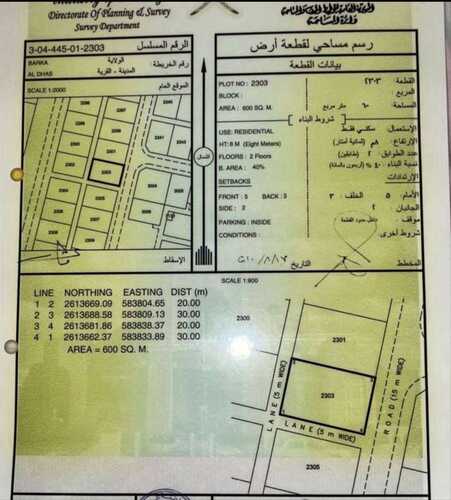 Directorate of Planning & Survey
Survey Department
3-04-445-01-2303
الرقم المسلسل
رسم مساحي لقطعة أرض
BARKA
الولاية
رقم الخريطة
AL DHAS
المدينة - القرية
SCALE 1:2000
الموقع العام
بيانات القطعة
PLOT NO : 2303
القطعة : ٢٣٠٣
BLOCK :
المربع :
AREA : 600 SQ. M.
متر مربع
المساحة :
شروط البناء
USE: RESIDENTIAL
الاستعمال: سكني فقط
HT:8 M (Eight Meters)
الارتفاع: ٨م (ثمانية أمتار)
FLOORS : 2 Floors
عدد الطوابق : ٢ (طابقين)
B. AREA : 40%
نسبة البناء : ٤٠٪ (أربعون بالمائة)
SETBACKS
الارتدادات
FRONT : 5 BACK : 3
الأمام : ٥ الخلف : ٣
SIDE : 2
الجانبان : ٢
PARKING : INSIDE
موقف : داخل حدود القطعة
CONDITIONS :
شروط أخرى :
الشمال
2303
2305
الإسقاط
التاريخ
المخطط
SCALE 1:900
LINE NORTHING EASTING DIST (m)
1 2 2613669.09 583804.65 20.00
2 3 2613688.58 583809.13 30.00
3 4 2613681.86 583838.37 20.00
4 1 2613662.37 583833.89 30.00
AREA = 600 SQ. M.
2300
2301
2303
LANE (5 m WIDE)
LANE (5 m WIDE)
ROAD (15 m WIDE)
2305